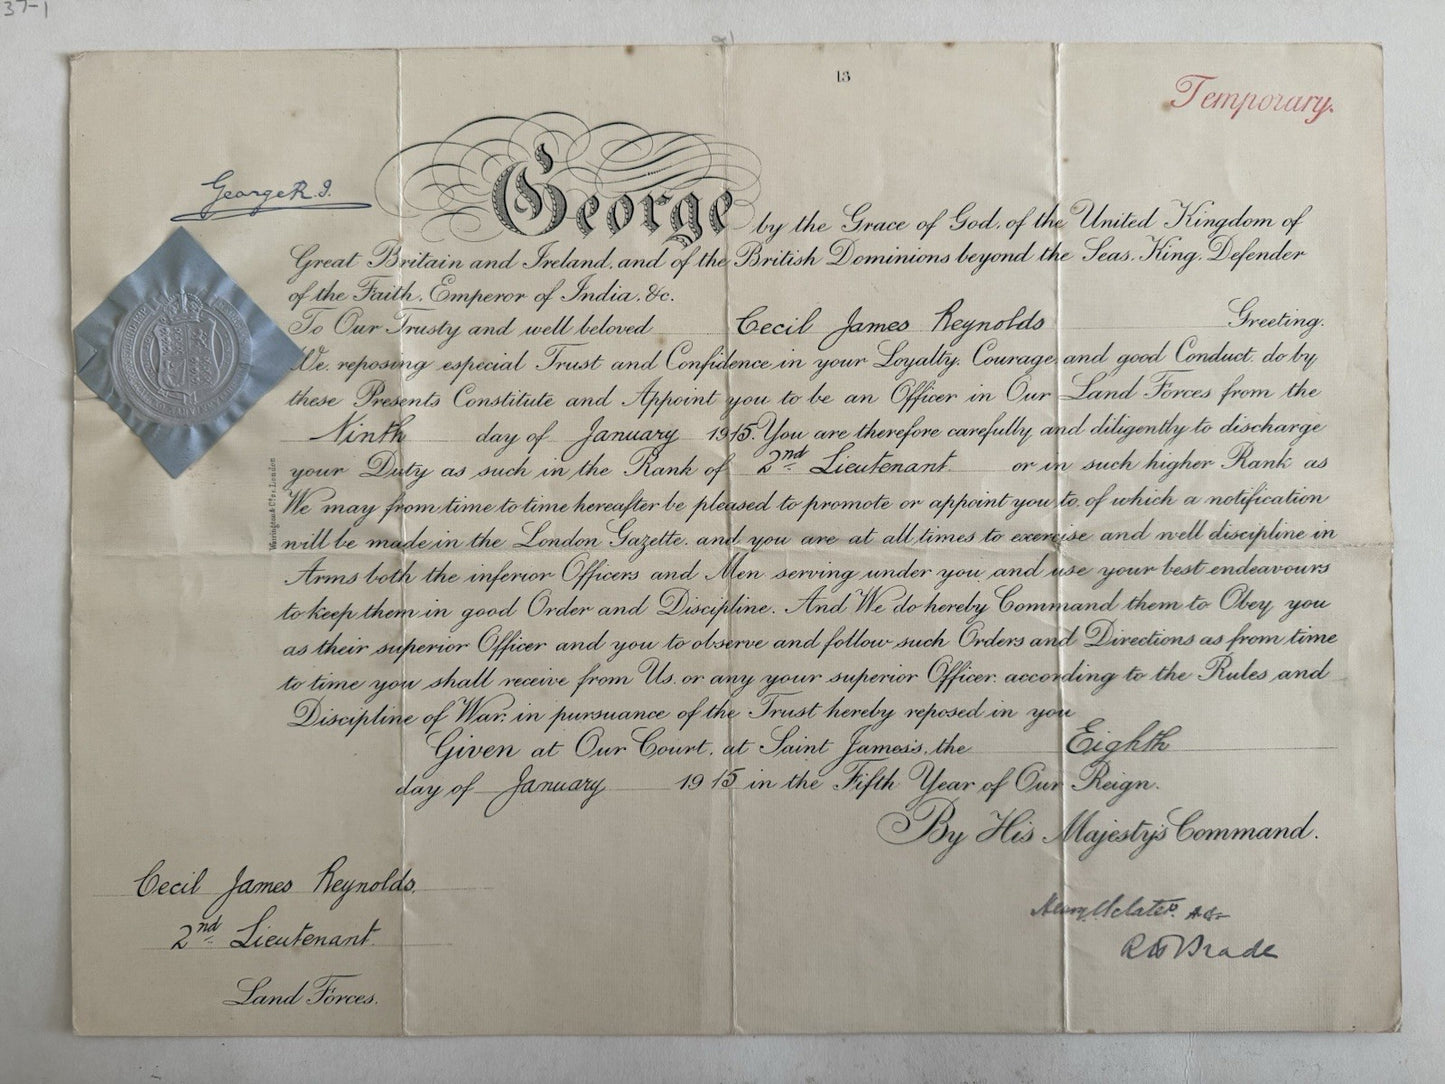 37-1
13
Temporary.
George R. I.
George by the Grace of God, of the United Kingdom of
Great Britain and Ireland, and of the British Dominions beyond the Seas, King, Defender
of the Faith, Emperor of India, &c.
To Our Trusty and well beloved Cecil James Reynolds Greeting.
We, reposing especial Trust and Confidence in your Loyalty, Courage, and good Conduct, do by
these Presents Constitute and Appoint you to be an Officer in Our Land Forces from the
Ninth day of January 1915. You are therefore carefully and diligently to discharge
your Duty as such in the Rank of 2nd Lieutenant or in such higher Rank as
We may from time to time hereafter be pleased to promote or appoint you to, of which a notification
will be made in the London Gazette, and you are at all times to exercise and well discipline in
Arms both the inferior Officers and Men serving under you and use your best endeavours
to keep them in good Order and Discipline. And We do hereby Command them to Obey you
as their superior Officer and you to observe and follow such Orders and Directions as from time
to time you shall receive from Us, or any your superior Officer, according to the Rules and
Discipline of War, in pursuance of the Trust hereby reposed in you
Given at Our Court, at Saint James's, the Eighth
day of January 1915 in the Fifth Year of Our Reign.
By His Majesty's Command.
Cecil James Reynolds
2nd Lieutenant
Land Forces.
R H Brade
Warrington & Co. London